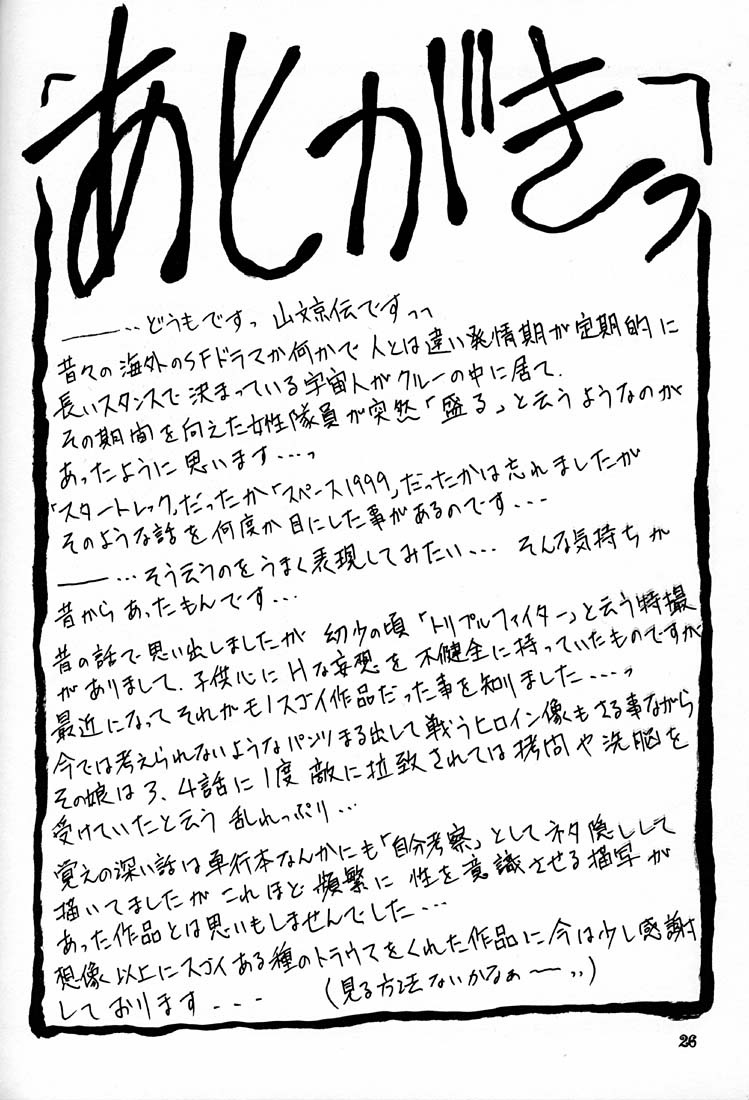 「あとがきっ」
――‥どうもですっ 山文京伝ですっっ
昔々の海外のSFドラマか何かで人とは違い発情期が定期的に
長いスタンスで決まっている宇宙人がクルーの中に居て、
その期間を向えた女性隊員が突然「盛る」と云うようなのが
あったように思います…っ
「スタートレック」だったか「スペース1999」だったかは忘れましたが
そのような話を何度か目にした事があるのです…
――…そう云うのをうまく表現してみたい… そんな気持ちが
昔からあったもんです…
昔の話で思い出しましたが 幼少の頃「トリプルファイター」と云う特撮
がありまして、子供心にHな妄想を不健全に持っていたものですが
最近になってそれがモノスゴイ作品だった事を知りました…っ
今では考えられないようなパンツまる出しで戦うヒロイン像もさる事ながら
その娘は3、4話に1度 敵に拉致されては拷問や洗脳を
受けていたと云う 乱れっぷり…
覚えの深い話は単行本なんかにも「自分考察」としてネタ隠しして
描いてましたが これほど頻繁に 性を意識させる描写が
あった作品とは思いもしませんでした…
想像以上にスゴイある種のトラウマをくれた作品に今は少し感謝
しております… (見る方法ないかなぁーッ)
26